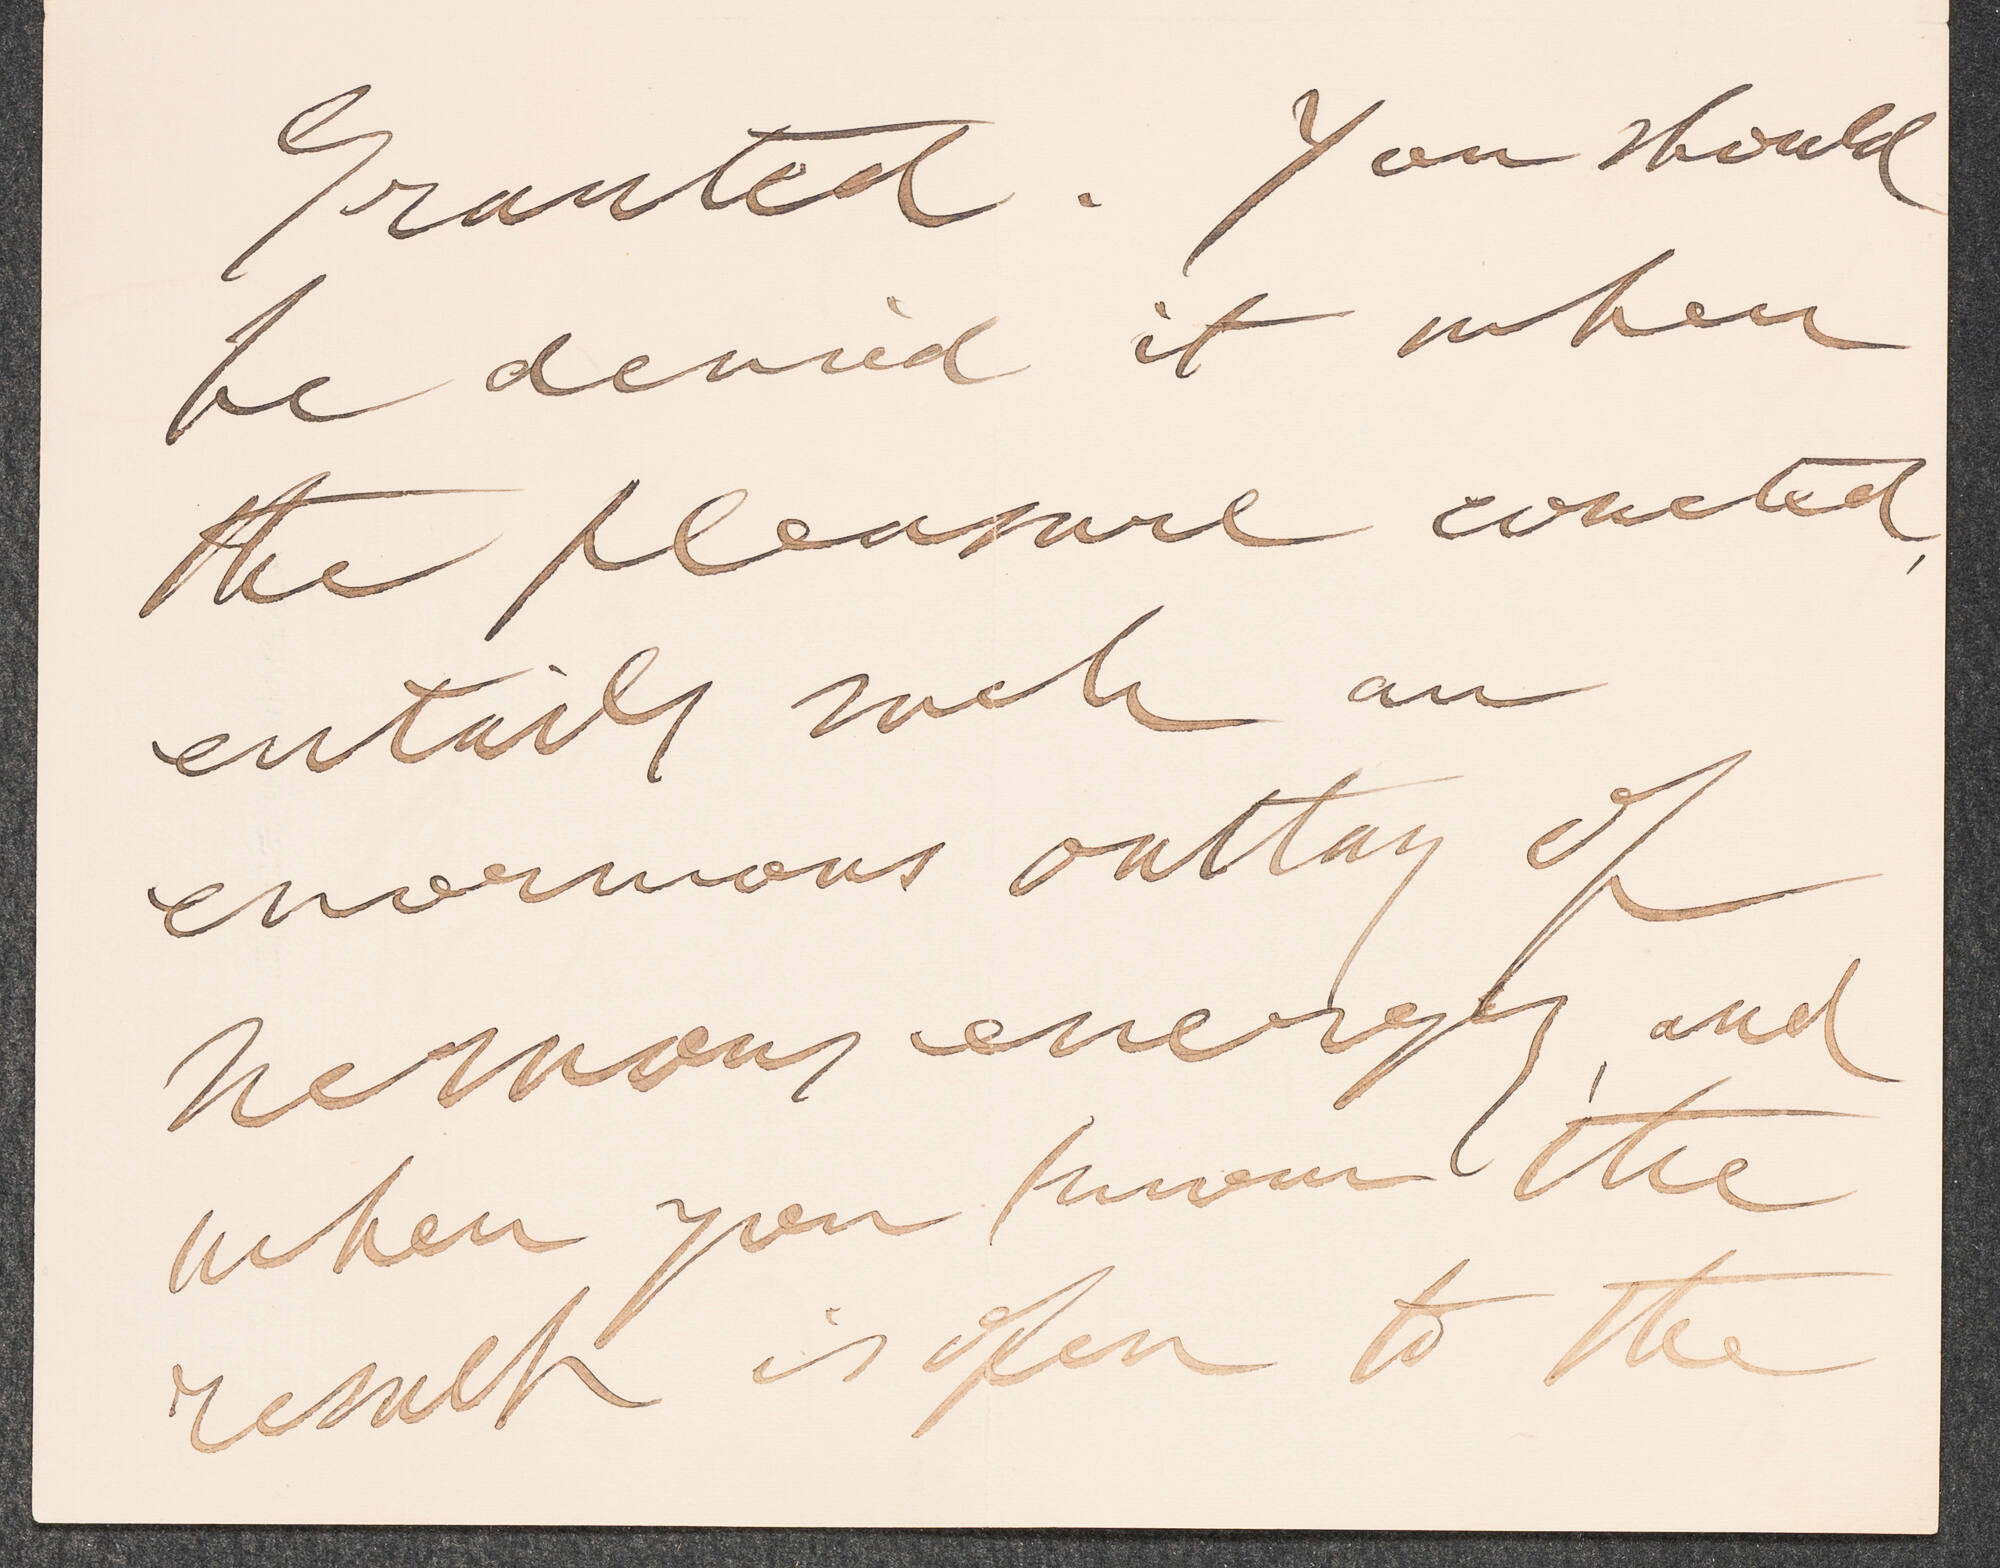 Granted. You should
be denied it when
the pleasure coveted,
entails such an
enormous outlay of
nervous energy, and
when you know the
result is open to the